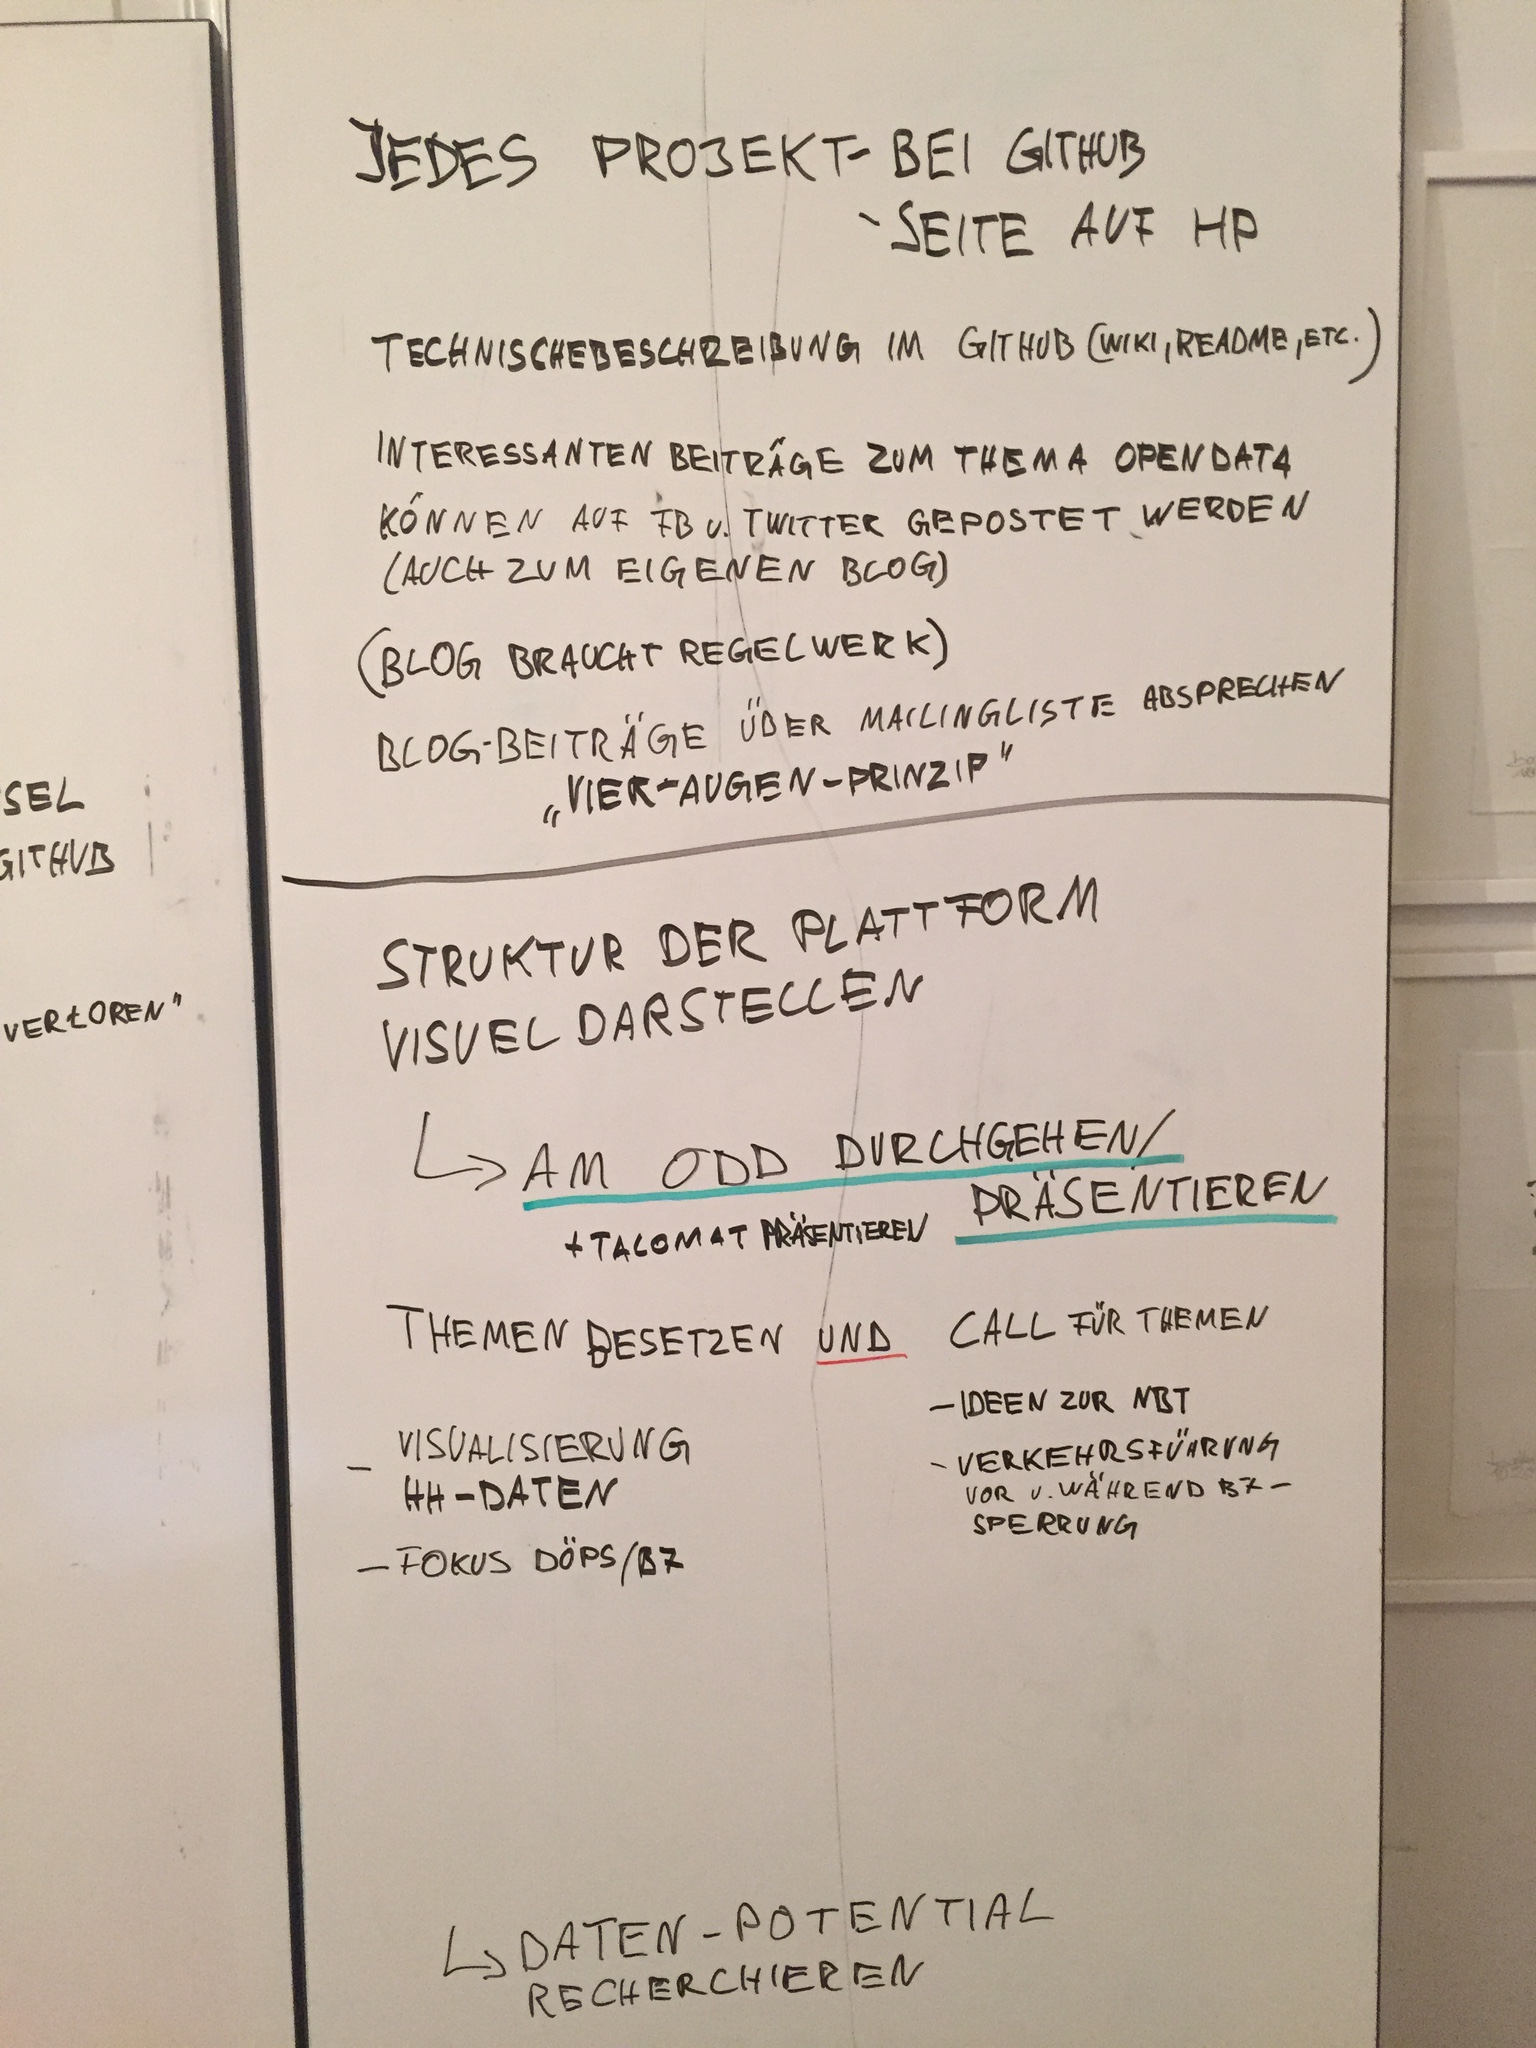 JEDES PROJEKT - BEI GITHUB
- SEITE AUF HP
TECHNISCHEBESCHREIBUNG IM GITHUB (WIKI, README, ETC.)
INTERESSANTEN BEITRÄGE ZUM THEMA OPENDATA
KÖNNEN AUF FB U. TWITTER GEPOSTET WERDEN
(AUCH ZUM EIGENEN BLOG)
(BLOG BRAUCHT REGELWERK)
BLOG-BEITRÄGE ÜBER MAILINGLISTE ABSPRECHEN
„VIER-AUGEN-PRINZIP"
SEL
GITHUB
VERLOREN"
STRUKTUR DER PLATTFORM
VISUEL DARSTELLEN
↳ AM ODD DURCHGEHEN/
PRÄSENTIEREN
+ TALOMAT PRÄSENTIEREN
THEMEN BESETZEN UND CALL FÜR THEMEN
- VISUALISIERUNG
HH-DATEN
- FOKUS DÖPS/B7
- IDEEN ZUR NBT
- VERKEHRSFÜHRUNG
VOR U. WÄHREND B7-
SPERRUNG
↳ DATEN-POTENTIAL
RECHERCHIEREN